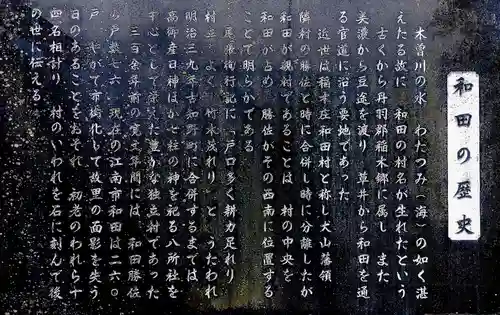 和田の歴史
木曽川の水 わたつみ(海)の如く湛
えたる故に 和田の村名が生れたという
古くから丹羽郡稲木郷に属し また
美濃から豆途を渡り 草井から和田を通
る官道に沿う要地であった
近世は稲木庄和田村と称し犬山藩領
隣村の勝佐と時に合併し時に分離したが
和田が親村であることは 村の中央を
和田が占め 勝佐がその西南に位置する
ことで明らかである
尾張徇行記に「戸口多く耕力足れり
村立 よく 竹木茂れり」とうたわれ
明治三九年古知野町に合併するまでは
高御産日神ほか七社の神を祀る八所社を
中心として栄えた豊かな独立村であった
三百余年前の寛文年間には 和田勝佐
の戸数七六 現在の江南市和田は二六〇
戸 やがて市街化して故里の面影を失う
日のあることをおそれ 初老のわれら十
四名相計り 村のいわれを石に刻んで後
の世に伝える